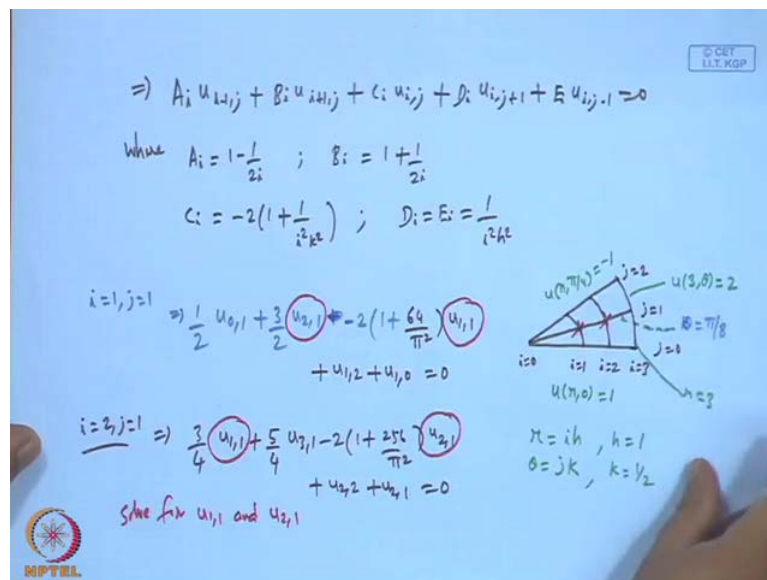 © CET
I.I.T. KGP
⇒ A_i u_{i-1,j} + B_i u_{i+1,j} + C_i u_{i,j} + D_i u_{i,j+1} + E_i u_{i,j-1} = 0
where A_i = 1 - 1/2i ; B_i = 1 + 1/2i
C_i = -2(1 + 1/i²k²) ; D_i = E_i = 1/i²h²
i=1, j=1 ⇒ 1/2 u_{0,1} + 3/2 u_{2,1} - 2(1 + 64/π²) u_{1,1}
+ u_{1,2} + u_{1,0} = 0
i=2, j=1 ⇒ 3/4 u_{1,1} + 5/4 u_{3,1} - 2(1 + 256/π²) u_{2,1}
+ u_{2,2} + u_{2,1} = 0
solve for u_{1,1} and u_{2,1}
u(r,π/4) = -1
j=2
u(3,θ) = 2
j=1
θ = π/8
j=0
i=0 i=1 i=2 i=3
r=3
u(r,0) = 1
r = ih , h=1
θ = jk , k = 1/2
NPTEL